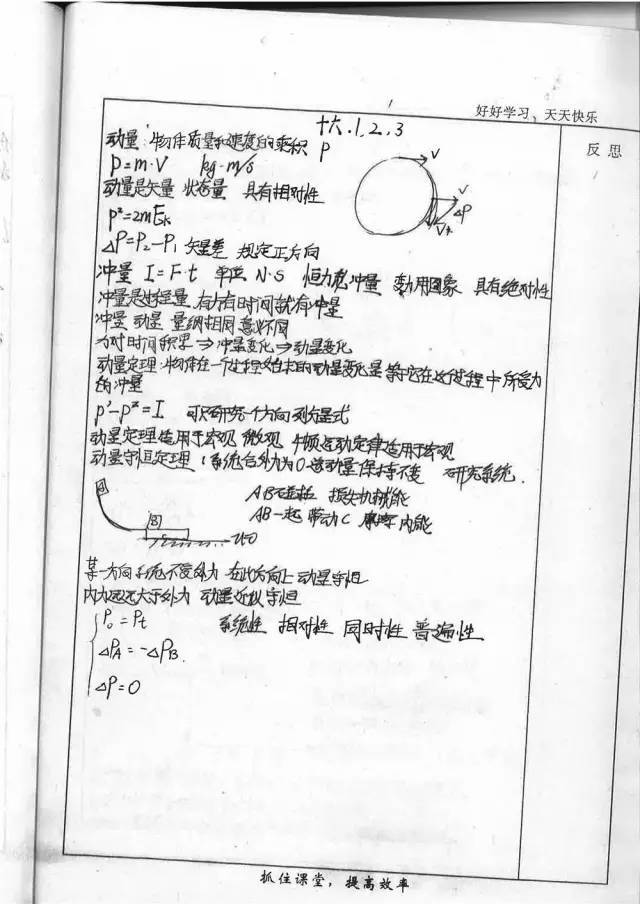 好好学习、天天快乐
反思
十六.1,2,3
动量:物体质量和速度的乘积 P
P=m·V kg·m/s
动量是矢量 状态量 具有相对性
V
V
△P
P²=2mEk
△P=P₂-P₁ 矢量差 规定正方向
冲量 I=F·t 单位 N·S 恒力冲量 变力用图象 具有绝对性
冲量是过程量 有力有时间就有冲量
冲量 动量 量纲相同 意义不同
力对时间积累⇒冲量变化⇒动量变化
动量定理:物体在一个过程始末的动量变化量等于它在这个过程中所受力
的冲量
P'-P=I 可只研究一个方向 列方程式
动量定理适用于宏观 微观 牛顿运动定律适用于宏观
动量守恒定理:系统合外力为0 总动量保持不变 研究系统.
A
B
AB碰撞 损失机械能
AB一起 带动C 摩擦 内能
μ≠0
某一方向系统不受外力 在此方向上动量守恒
内力远远大于外力 动量近似守恒
P₀=Pt 系统性 相对性 同时性 普遍性
△PA=-△PB.
△P=0
抓住课堂,提高效率